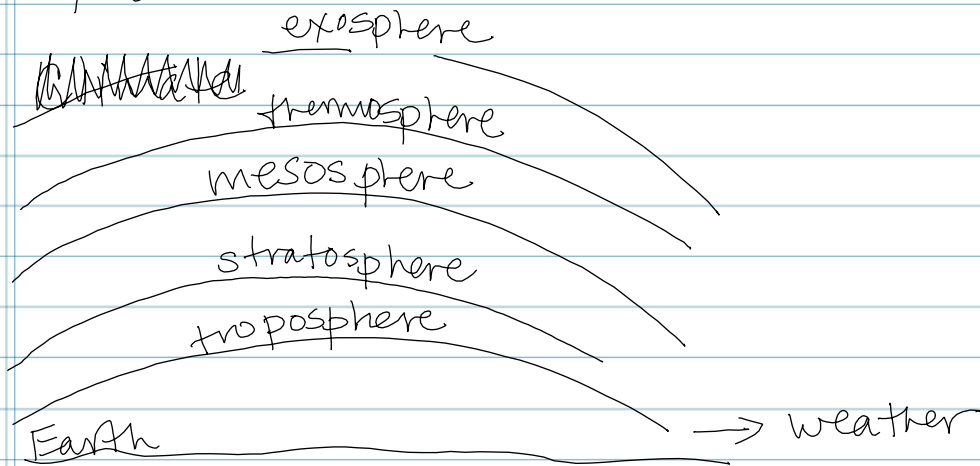 exosphere
thermosphere
mesosphere
stratosphere
troposphere
Earth → weather